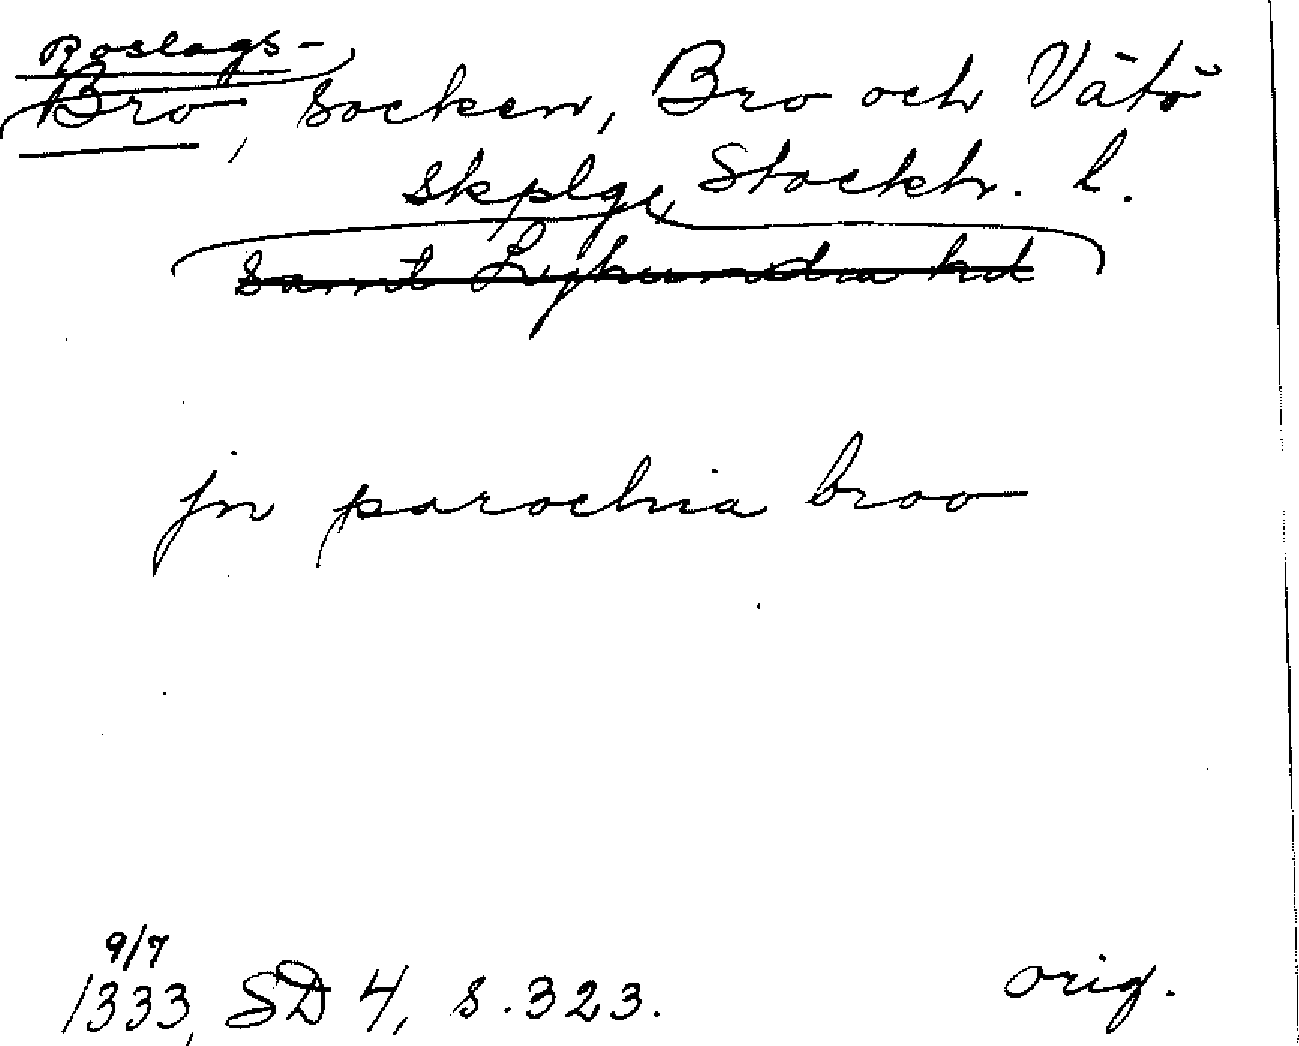 Roslags-
Bro, socken, Bro och Vätö
skplg, Stockh. l.
samt Lyhundra hd
jn parochia broo
9/7
1333, SD 4, s. 323. orig.